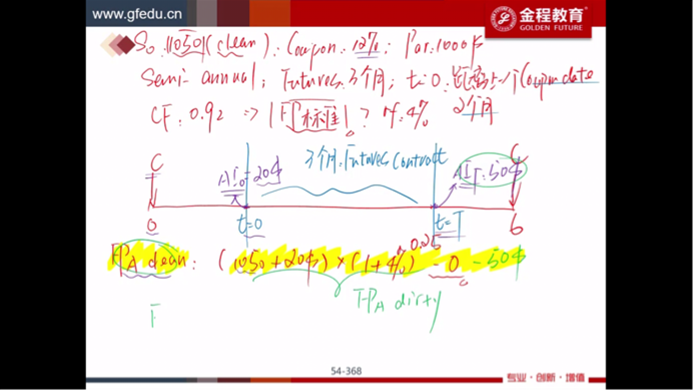 www.gfedu.cn
金程教育
GOLDEN FUTURE
S₀: 1050$ (clean); Coupon: 12%; Par: 1000$
Semi-annual; Futures: 3个月; t=0: 距离上一个Coupon date
CF: 0.92 => |FP标准|? rf: 4% 2个月
C 3个月 Futures Contract C
AI₀=20$ AI_T: 50$
0 t=0 t=T 6
FP_A clean: (1050+20$)×(1+4%)^0.25 - 0 - 50$
FP_A dirty
F
54-368
专业·创新·增值